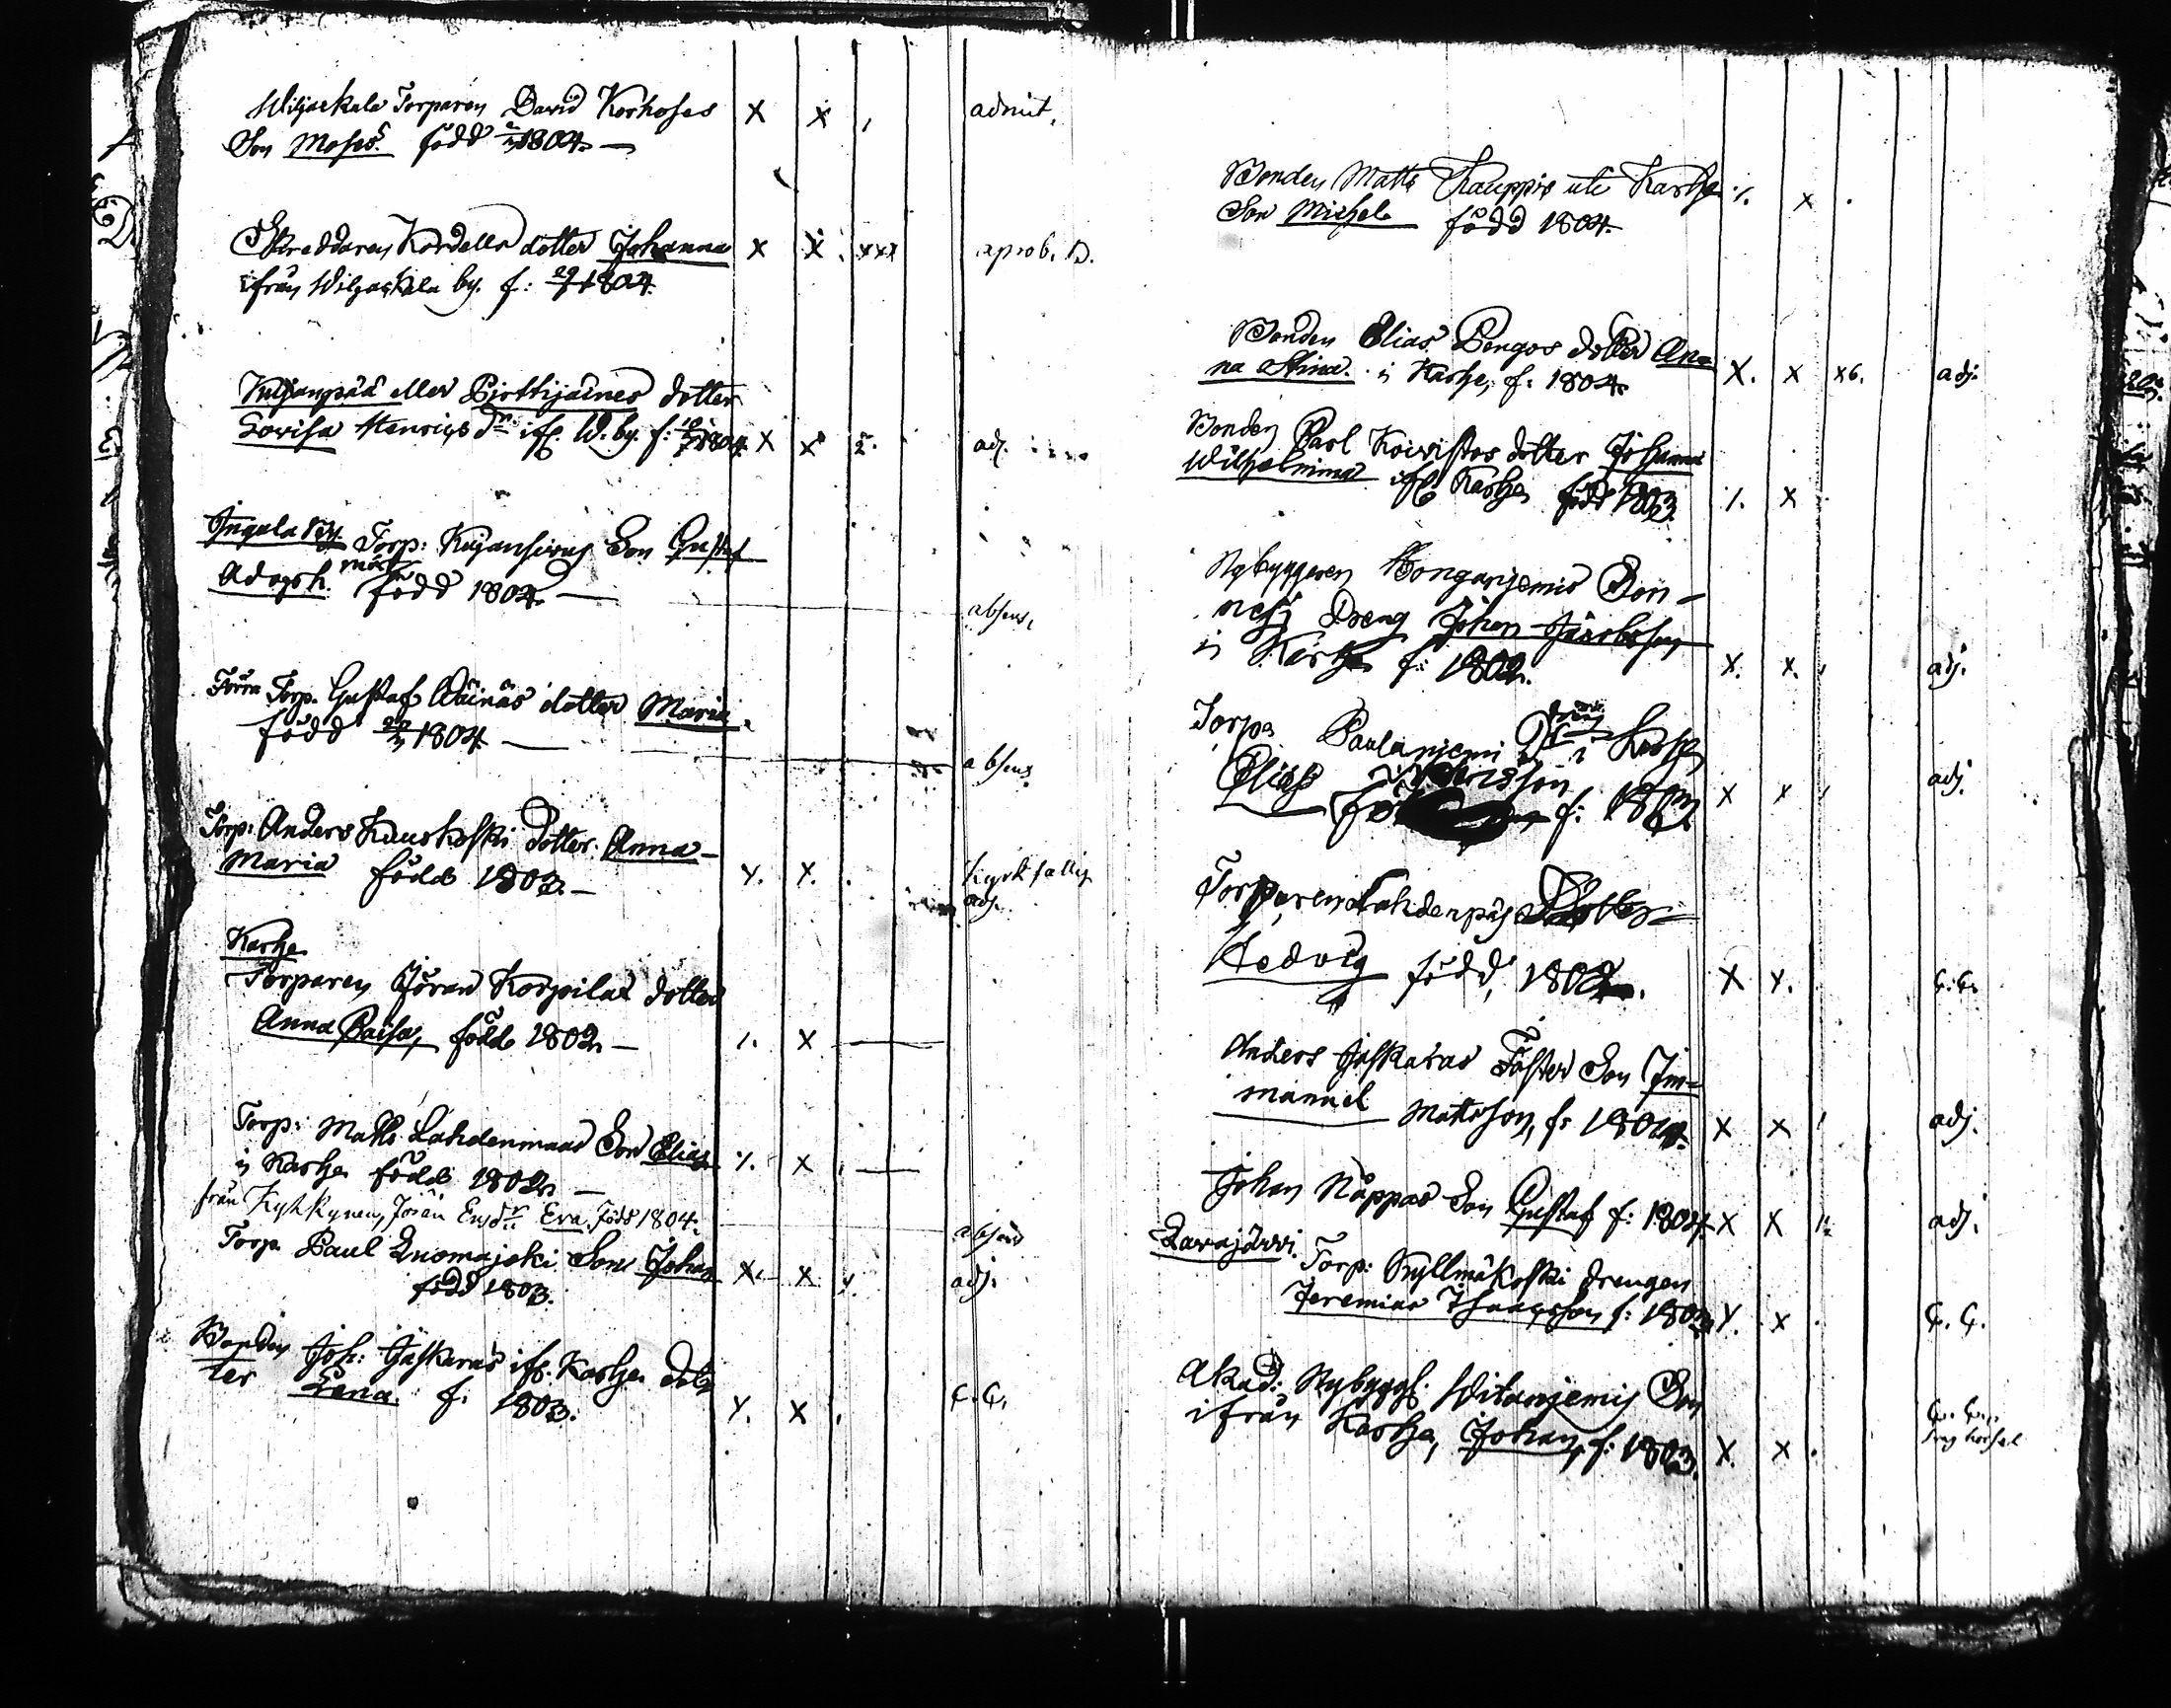 Wiljackala Torparen David Korhoses X X , admit.
Son Moses född 1804. —
Skreddaren Kordells dotter Johanna X X . xxx aprob. D.
ifrån Wiljackala by. f: 29 1804.
Kujanpää eller Pjottijaines dotter
Lovisa Henrics dr ifr. W. by. f: 1804. X X adj.
Ingala By. Torp: Kujansivus Son Gustaf
Adolph född 1804. — absens,
Törra Torp. Gustaf Wäinäs dotter Maria
född 1804. — absens
Torp: Anders Kauskoski dotter Anna-
Maria född 1803. — X. X. . Kyrkfallig
adj.
Karhe
Torparen Jöran Korpilas dotter
Anna Caisa, född 1802. — X
Torp: Matts Lahdenmaas Son Elias X
i Karhe född 1802. —
från Kyhkynen, Jöran Ersdr Eva. född 1804. absens
Torp. Paul Luomajoki Son Johan X. X adj.
född 1803.
Bonden Joh: Jäskaras ifr. Karhe dot=
ter Lena. f. 1803. X. X . C. C.
Bonden Matts Kauppis uti Karhe X .
Son Michel född 1804.
Bonden Elias Pengos dotter An=
na Stina. i Karhe, f: 1804. X. X x6. adj.
Bonden Carl Koivistos dotter Johanna
Wilhelmina ifr Karhe född 1803. X
Nybyggaren Honganjemis Son-
nes Dreng Johan Jacobsson
i Karhe f: 1802. X. X. , adj.
Torpa Paulanjemi dräng i Karhe
Elias f: 1803 X X , adj.
Torparen Lahdenpäs Dotter
Hedvig född, 1802. X X. C. C.
Anders Jäskaras Foster Son Im=
manuel Mattsson, f: 1804. X X adj.
Johan Näppas Son Gustaf f: 1804. X X adj.
Lavajärvi. Torp: Kyllmäkoski drengen
Jeremias Isaacsson f: 1803 X. X . C. C.
Akad: Nybygg. Witanjemis Son
ifrån Karhe, Johan, f: 1803. X. X . C. C.